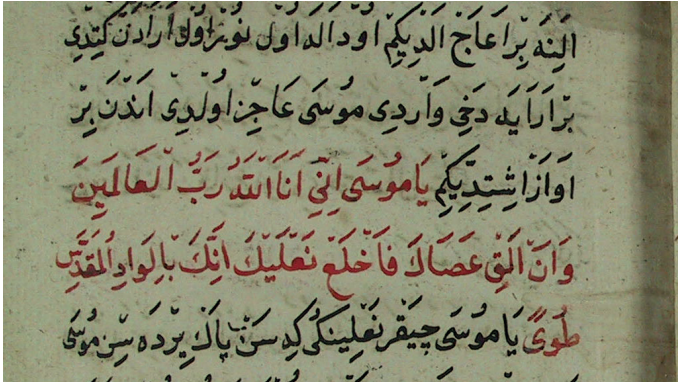 اَلِنَه بِرْ اَغَاجْ اَلْدِيكِمْ اُودْ اَلَه اَولْ نُورْ اَولْ اَرَادَنْ كِتْدِى
بِرْ اَرَايَه دَخِى وَارْدِى مُوسَى عَاجِزْ اُولْدِى اَنْدَنْ بِرْ
اَوَازْ اِشِتْدِيكِمْ يَا مُوسَى اِنِّي اَنَا اللّٰهُ رَبُّ الْعَالَمِينَ
وَاَنْ اَلْقِ عَصَاكَ فَاخْلَعْ نَعْلَيْكَ اِنَّكَ بِالْوَادِ الْمُقَدَّسِ
طُوًى يَا مُوسَى چِيقَرْ نَعْلِينِكِى كِه سَنْ پَاكْ يِرْدَه سِنْ مُوسَى